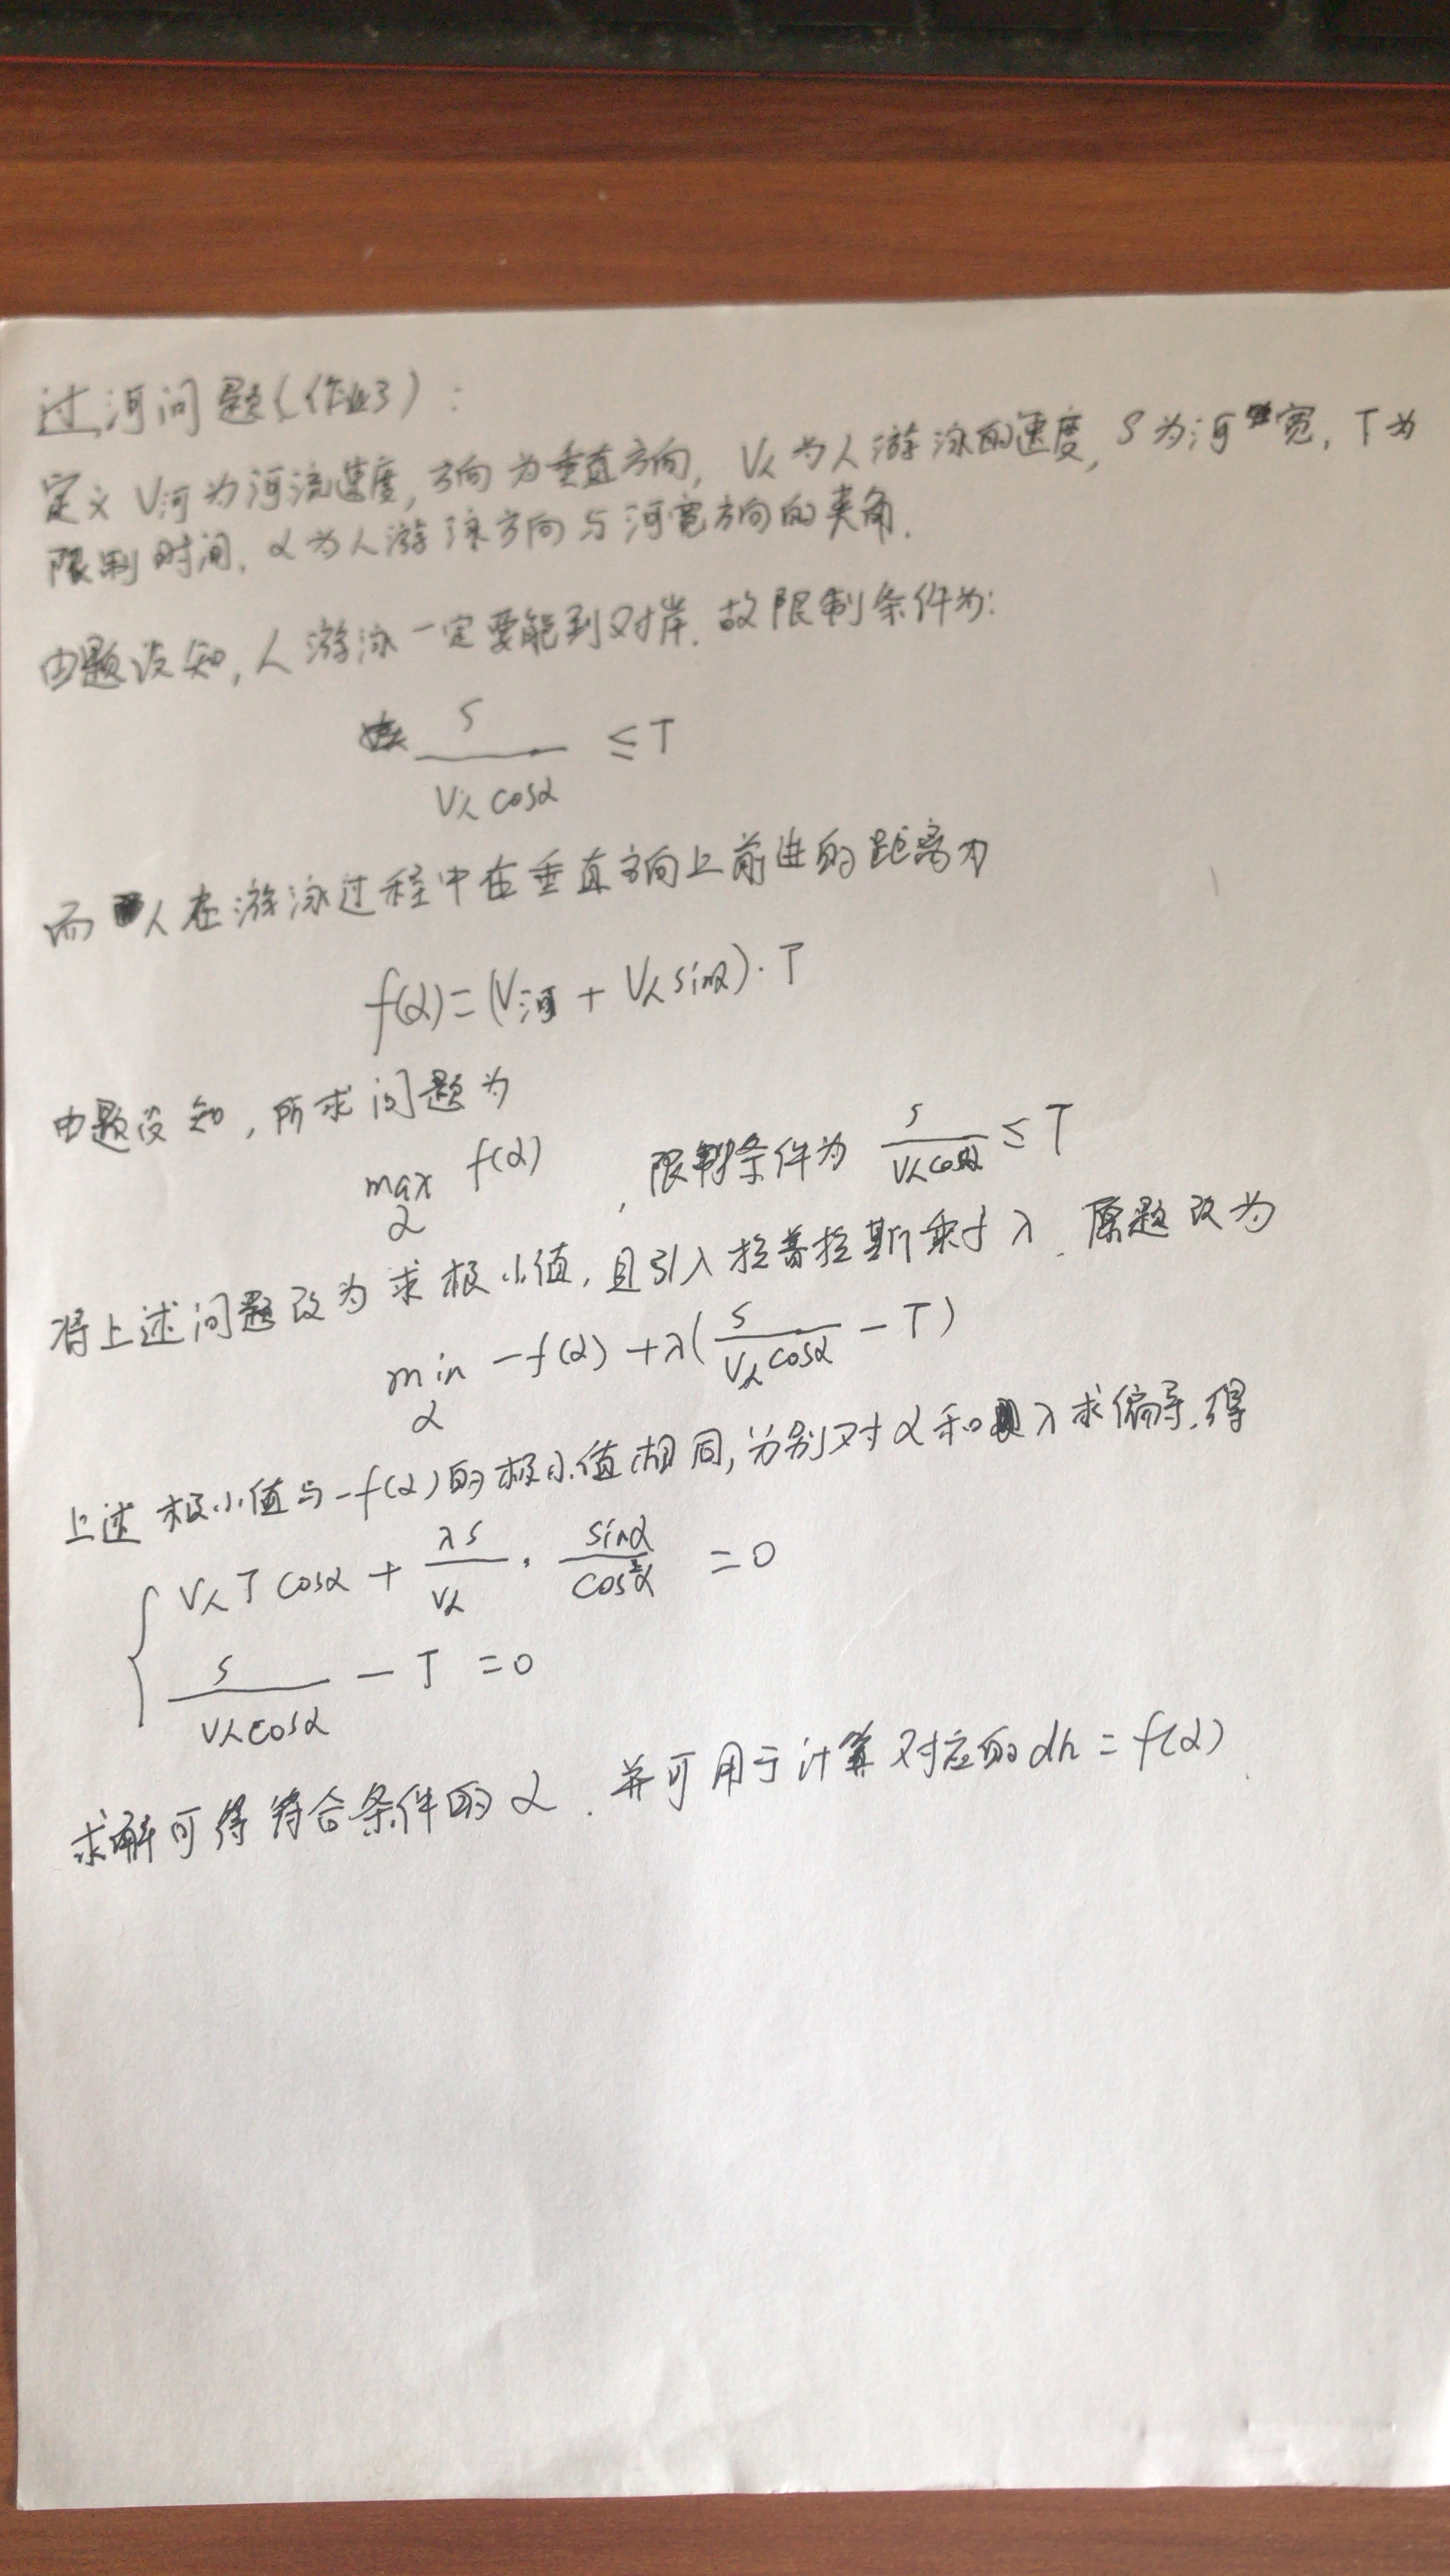 过河问题(作业3):
定义 V河为河流速度,方向为垂直方向, V人为人游泳的速度, S为河宽, T为
限制时间, α为人游泳方向与河宽方向的夹角.
由题设知,人游泳一定要能到对岸. 故限制条件为:
S / (V人 cosα) ≤ T
而人在游泳过程中在垂直方向上前进的距离为
f(α) = (V河 + V人 sinα) · T
由题设知,所求问题为
max_α f(α) , 限制条件为 S / (V人 cosα) ≤ T
将上述问题改为求极小值,且引入拉普拉斯乘子 λ. 原题改为
min_α -f(α) + λ( S / (V人 cosα) - T)
上述极小值与-f(α)的极小值相同,分别对α和λ求偏导,得
{ V人 T cosα + (λS / V人) · (sinα / cos²α) = 0
S / (V人 cosα) - T = 0
求解可得符合条件的α. 并可用于计算对应的dh = f(α)